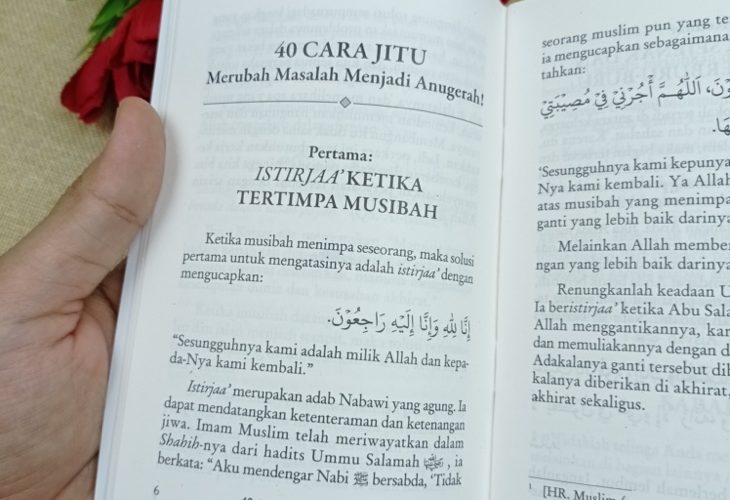 40 CARA JITU
Merubah Masalah Menjadi Anugerah!
Pertama:
ISTIRJAA' KETIKA
TERTIMPA MUSIBAH
Ketika musibah menimpa seseorang, maka solusi
pertama untuk mengatasinya adalah istirjaa' dengan
mengucapkan:
إِنَّا لِلّٰهِ وَإِنَّا إِلَيْهِ رَاجِعُوْنَ.
"Sesungguhnya kami adalah milik Allah dan kepa-
da-Nya kami kembali."
Istirjaa' merupakan adab Nabawi yang agung. Ia
dapat mendatangkan ketenteraman dan ketenangan
jiwa. Imam Muslim telah meriwayatkan dalam
Shahih-nya dari hadits Ummu Salamah , ia
berkata: "Aku mendengar Nabi ﷺ bersabda, 'Tidak
6
seorang muslim pun yang
ia mengucapkan sebagaimana
tahkan:
اَللّٰهُمَّ أْجُرْنِيْ فِيْ مُصِيْبَتِيْ
'Sesungguhnya kami
Nya kami kembali. Ya
atas musibah yang
ganti yang lebih baik
Melainkan Allah
ngan yang lebih baik
Renungkanlah keadaan
Ia beristirjaa' ketika Abu
Allah menggantikannya,
dan memuliakannya dengan
Adakalanya ganti tersebut
kalanya diberikan di akhirat,
akhirat sekaligus.
[HR. Muslim